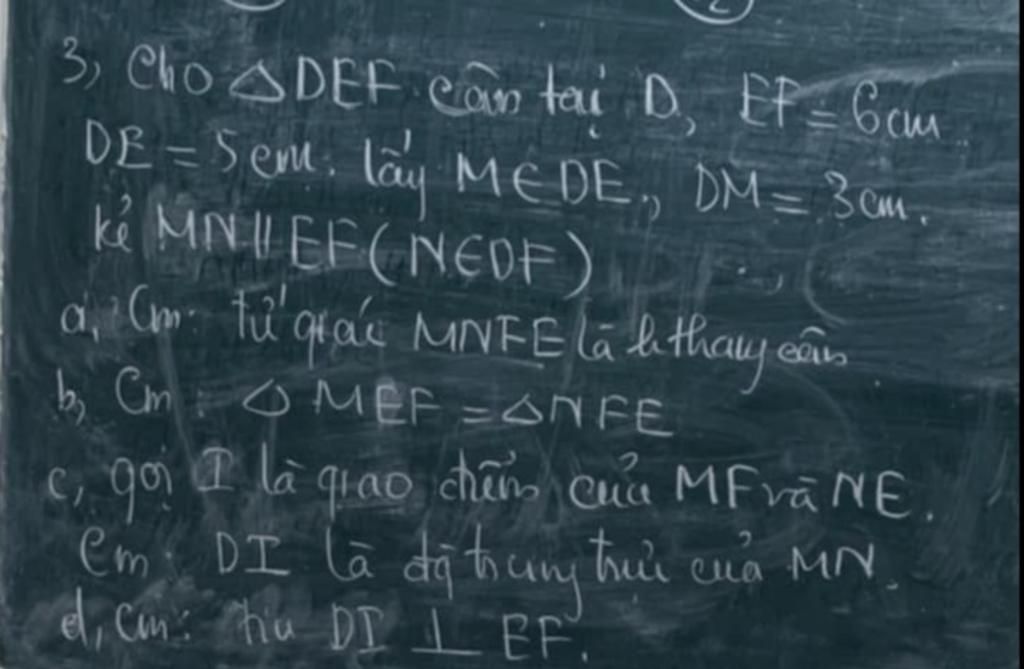 3, Cho △DEF cân tại D, EF = 6cm
DE = 5cm. lấy M∈DE., DM = 3cm.
kẻ MN // EF (N∈DF)
a, Cm: tứ giác MNFE là h thang cân
b, Cm: △ MEF = △NFE
c, gọi I là giao điểm của MF và NE.
Cm: DI là đg trung trực của MN.
d, Cm: tia DI ⊥ EF.